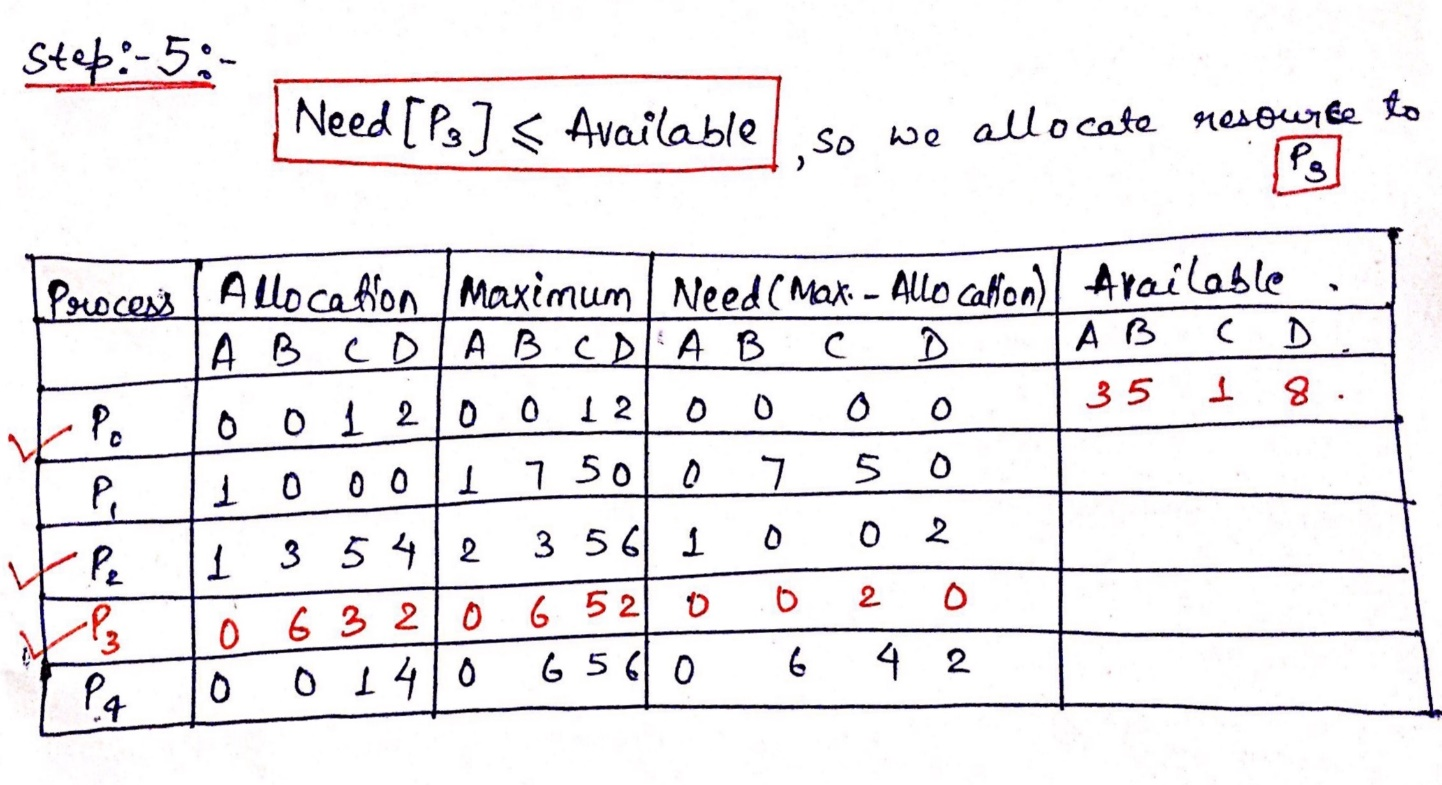 Step:-5:-
Need[P3] ⩽ Available , so we allocate resource to
P3
Process Allocation Maximum Need(Max.-Allocation) Available .
A B C D A B C D A B C D A B C D .
P0 0 0 1 2 0 0 1 2 0 0 0 0 3 5 1 8 .
P1 1 0 0 0 1 7 5 0 0 7 5 0
P2 1 3 5 4 2 3 5 6 1 0 0 2
P3 0 6 3 2 0 6 5 2 0 0 2 0
P4 0 0 1 4 0 6 5 6 0 6 4 2